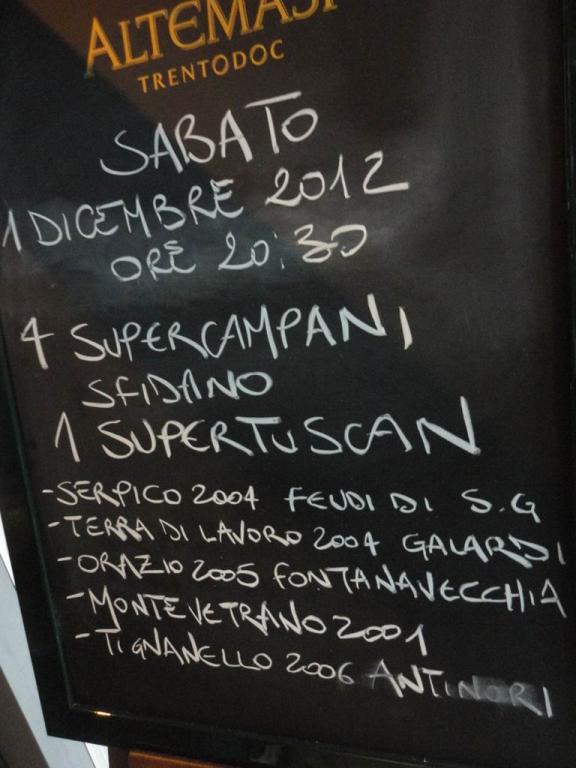 ALTEMASI
TRENTODOC
SABATO
1 DICEMBRE 2012
ORE 20:30
4 SUPERCAMPANI
SFIDANO
1 SUPERTUSCAN
-SERPICO 2004 FEUDI DI S.G
-TERRA DI LAVORO 2004 GALARDI
-ORAZIO 2005 FONTANAVECCHIA
-MONTEVETRANO 2001
-TIGNANELLO 2006 ANTINORI